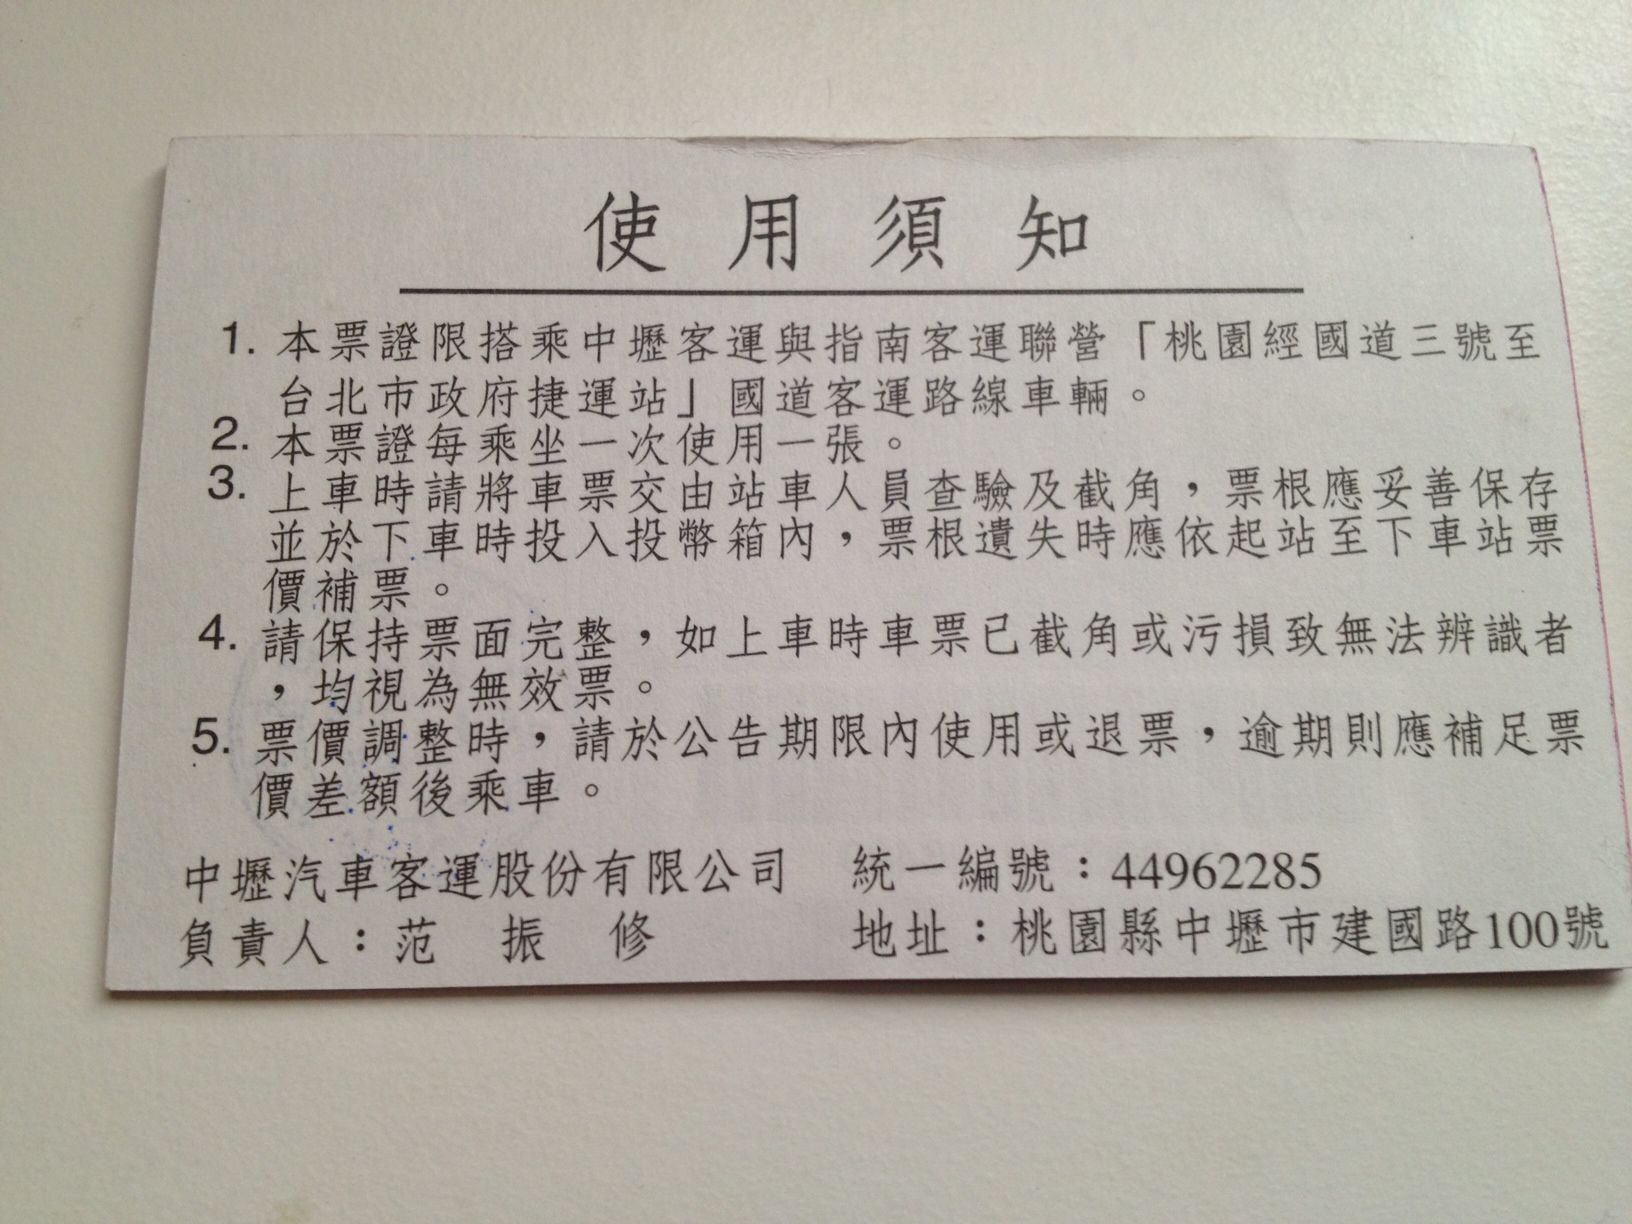 使用須知
1. 本票證限搭乘中壢客運與指南客運聯營「桃園經國道三號至
台北市政府捷運站」國道客運路線車輛。
2. 本票證每乘坐一次使用一張。
3. 上車時請將車票交由站車人員查驗及截角，票根應妥善保存
並於下車時投入投幣箱內，票根遺失時應依起站至下車站票
價補票。
4. 請保持票面完整，如上車時車票已截角或污損致無法辨識者
，均視為無效票。
5. 票價調整時，請於公告期限內使用或退票，逾期則應補足票
價差額後乘車。
中壢汽車客運股份有限公司 統一編號：44962285
負責人：范振修 地址：桃園縣中壢市建國路100號